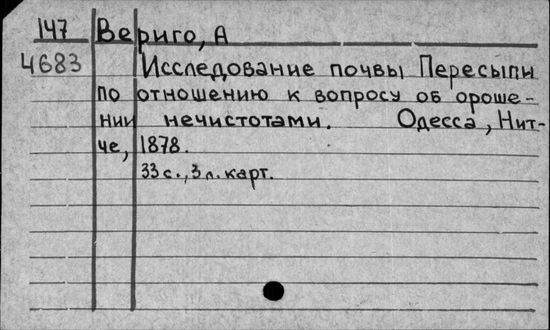 147 Вериго, А
4683 Исследование почвы Пересыпи
по отношению к вопросу об ороше-
нии нечистотами. Одесса, Нит-
че, 1878.
33 с., 3 л. карт.